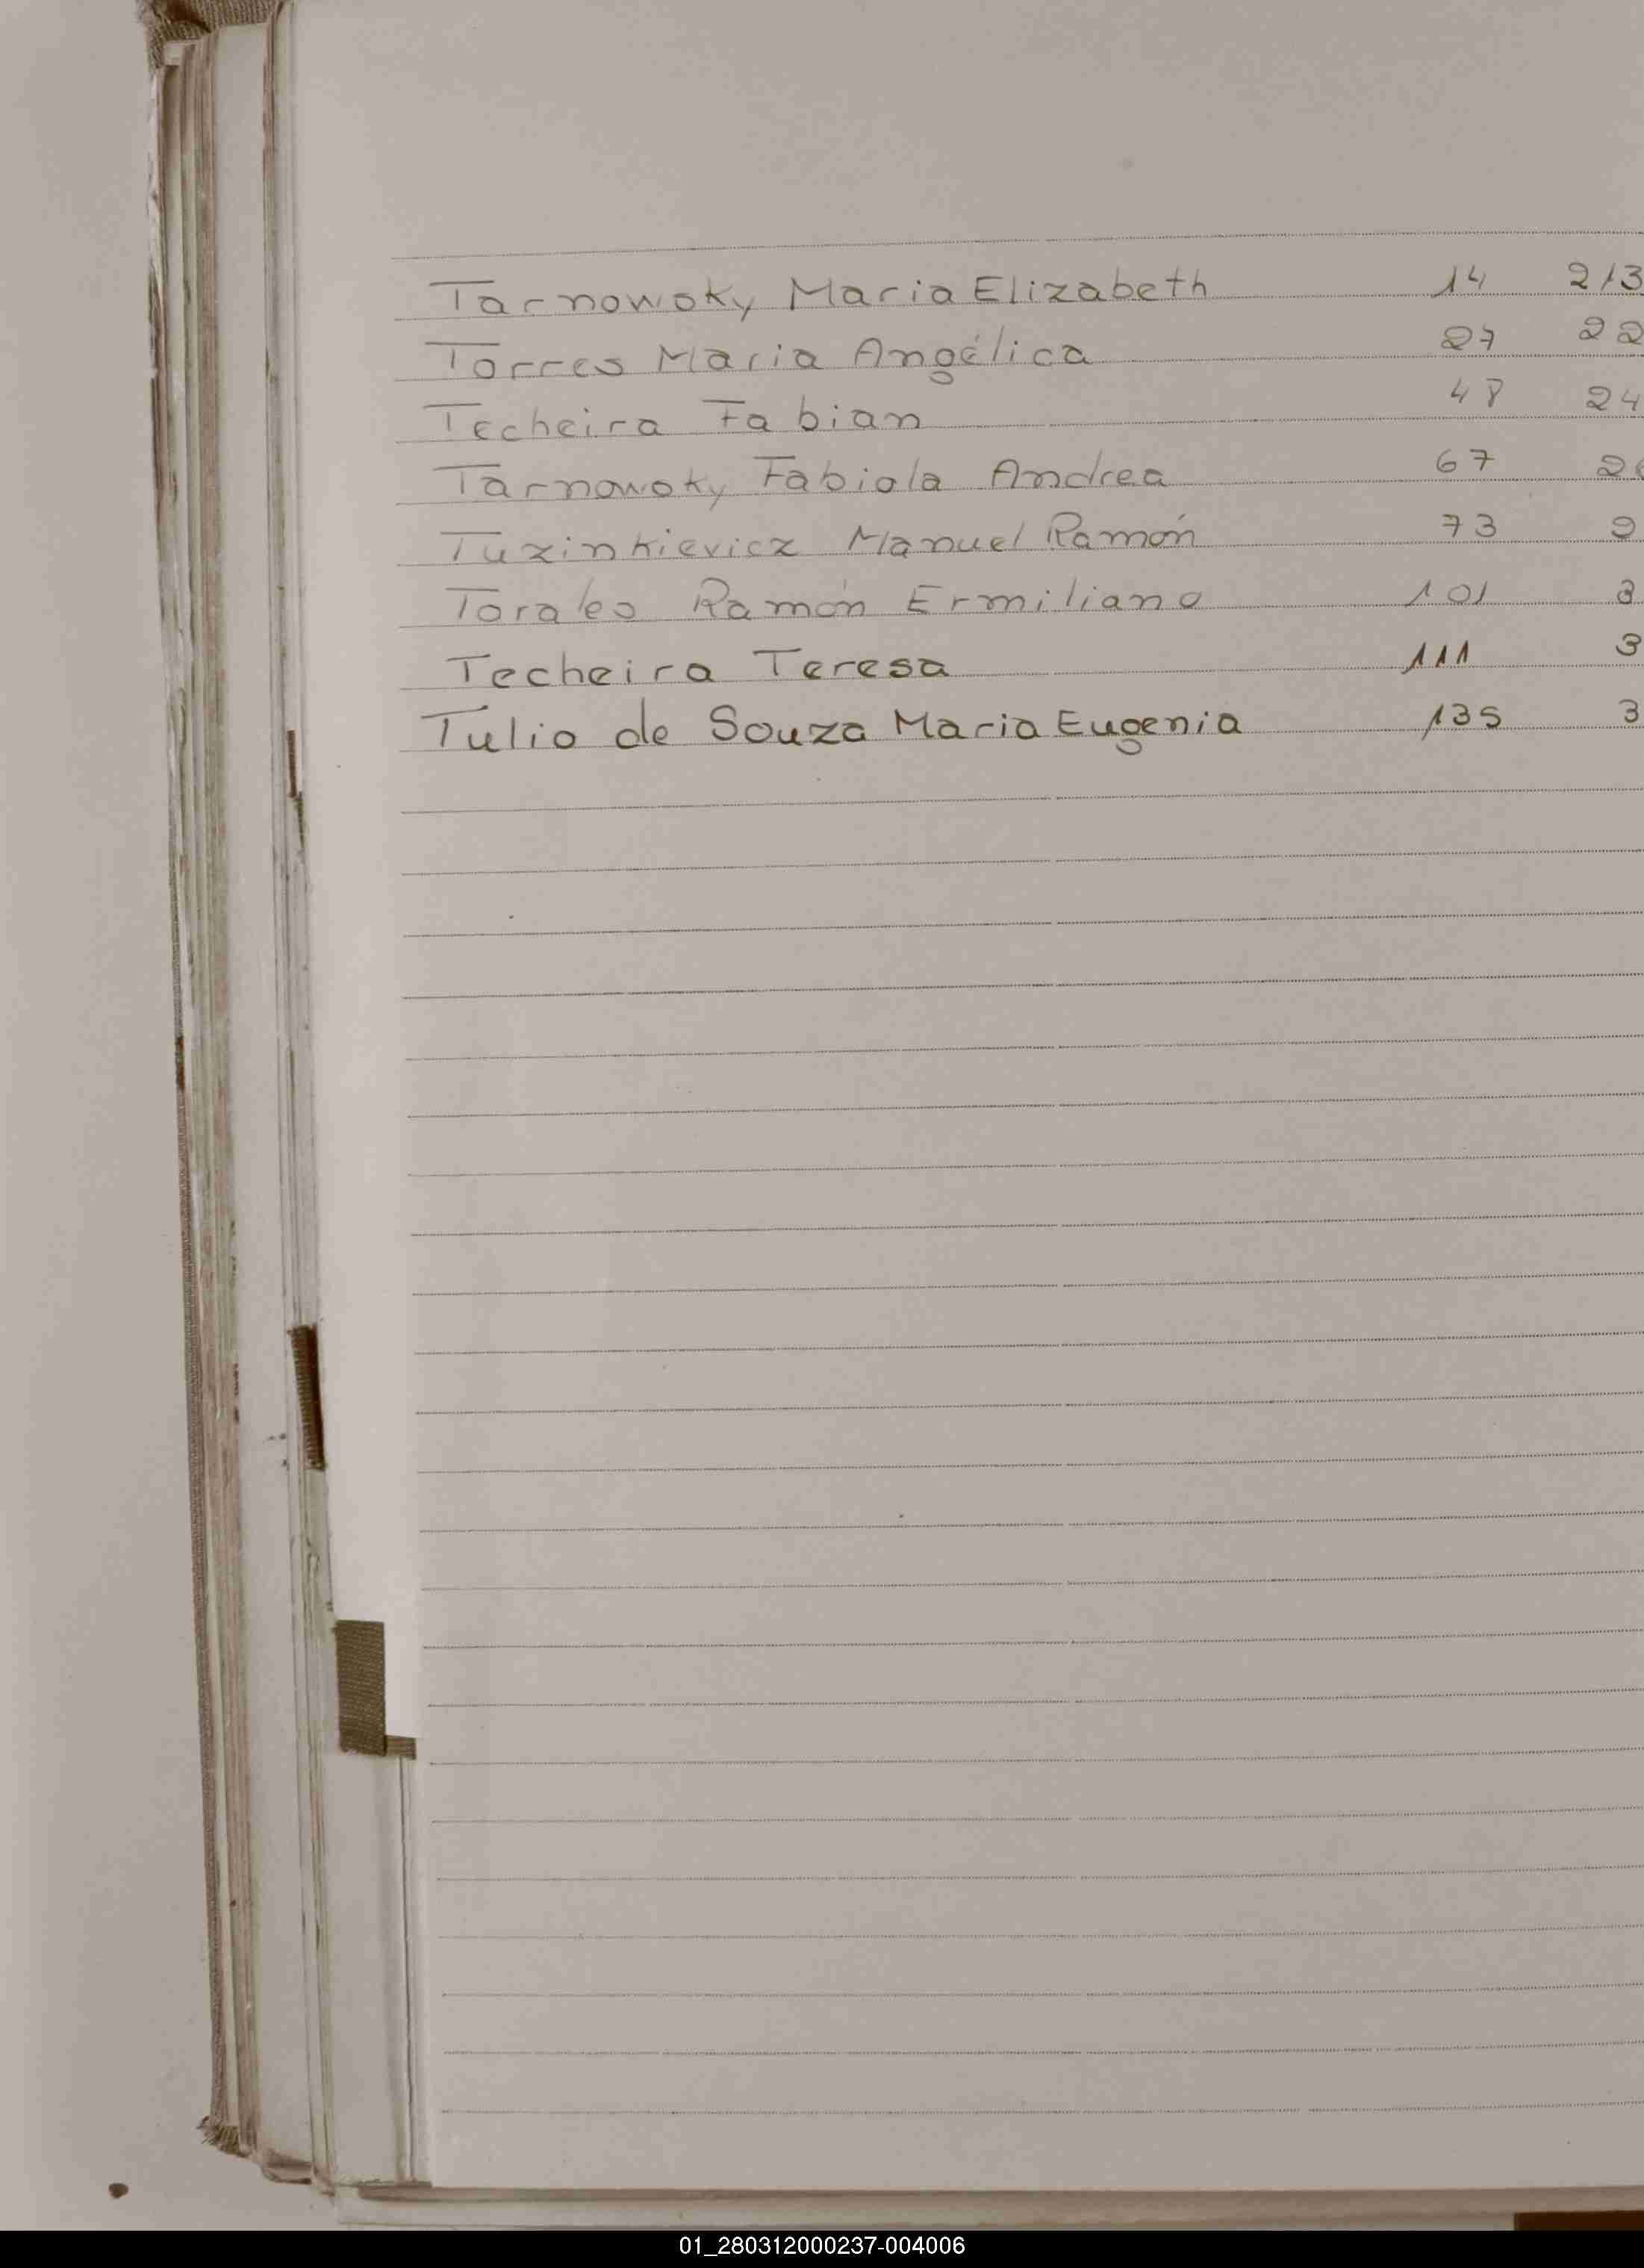 Tarnowsky Maria Elizabeth 14 213
Torres Maria Angélica 27 22
Techeira Fabian 48 24
Tarnowsky Fabiola Andrea 67 2
Tuzinkievicz Manuel Ramón 73 2
Torales Ramón Ermiliano 101 3
Techeira Teresa 111 3
Tulio de Souza Maria Eugenia 135 3
01_280312000237-004006